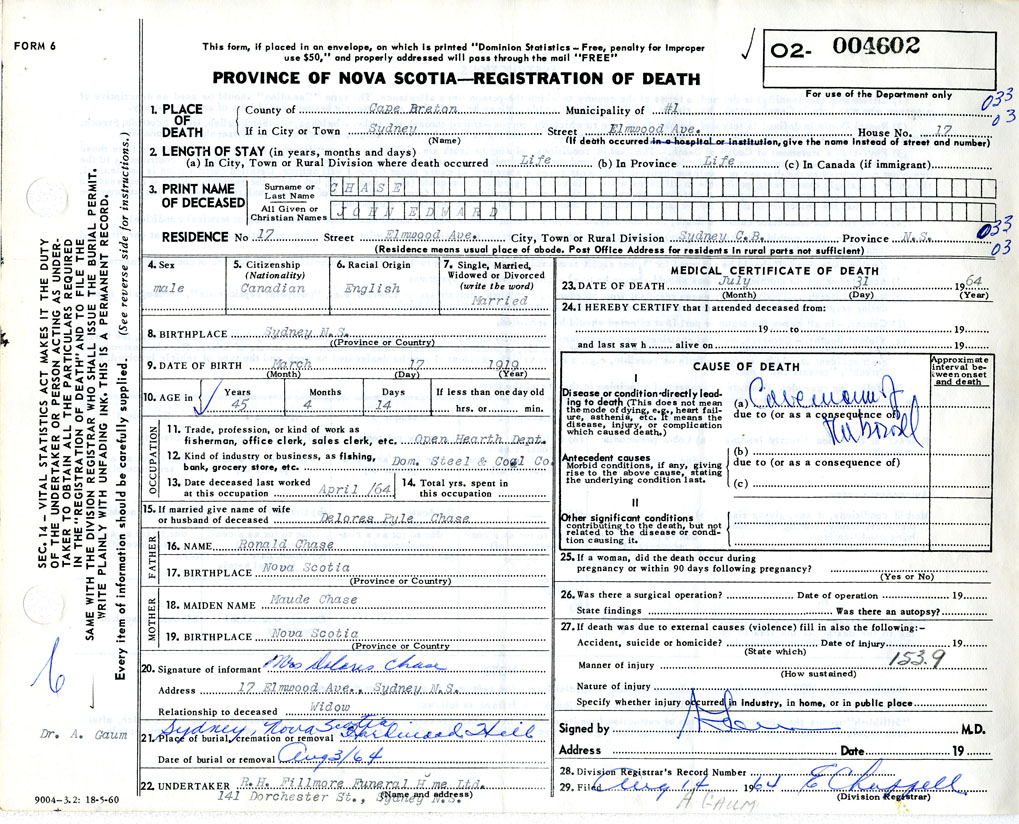 FORM 6
This form, if placed in an envelope, on which is printed "Dominion Statistics – Free, penalty for improper
use $50," and properly addressed will pass through the mail "FREE"
PROVINCE OF NOVA SCOTIA—REGISTRATION OF DEATH
02- 004602
For use of the Department only
033
03
1. PLACE OF DEATH
County of Cape Breton Municipality of #1
If in City or Town Sydney Street Elmwood Ave. House No. 17
(Name) (If death occurred in a hospital or institution, give the name instead of street and number)
2. LENGTH OF STAY (in years, months and days)
(a) In City, Town or Rural Division where death occurred Life (b) In Province Life (c) In Canada (if immigrant)
3. PRINT NAME OF DECEASED
Surname or Last Name CHASE
All Given or Christian Names JOHN EDWARD
033
03
RESIDENCE No 17 Street Elmwood Ave. City, Town or Rural Division Sydney C.B. Province N.S.
(Residence means usual place of abode. Post Office Address for residents in rural parts not sufficient)
4. Sex
male
5. Citizenship
(Nationality)
Canadian
6. Racial Origin
English
7. Single, Married,
Widowed or Divorced
(write the word)
Married
8. BIRTHPLACE Sydney N.S.
(Province or Country)
9. DATE OF BIRTH March 17 1919
(Month) (Day) (Year)
10. AGE in Years Months Days If less than one day old
45 4 14 hrs. or min.
OCCUPATION
11. Trade, profession, or kind of work as
fisherman, office clerk, sales clerk, etc. Open Hearth Dept.
12. Kind of industry or business, as fishing,
bank, grocery store, etc. Dom. Steel & Coal Co
13. Date deceased last worked
at this occupation April /64
14. Total yrs. spent in
this occupation
15. If married give name of wife
or husband of deceased Delores Pyle Chase
FATHER
16. NAME Ronald Chase
17. BIRTHPLACE Nova Scotia
(Province or Country)
MOTHER
18. MAIDEN NAME Maude Chase
19. BIRTHPLACE Nova Scotia
(Province or Country)
20. Signature of informant Mrs Dolores Chase
Address 17 Elmwood Ave., Sydney N.S.
Relationship to deceased Widow
Sydney, Nova Scotia
21. Place of burial, cremation or removal Hardwood Hill
Date of burial or removal Aug 3/64
22. UNDERTAKER R.H. Fillmore Funeral Home Ltd.
(Name and address)
141 Dorchester St., Sydney N.S.
MEDICAL CERTIFICATE OF DEATH
23. DATE OF DEATH July 31 1964
(Month) (Day) (Year)
24. I HEREBY CERTIFY that I attended deceased from:
19 to 19
and last saw h alive on 19
CAUSE OF DEATH
Approximate
interval be-
tween onset
and death
I
Disease or condition directly lead-
ing to death (This does not mean
the mode of dying, e.g., heart fail-
ure, asthenia, etc. It means the
disease, injury, or complication
which caused death.)
(a)
due to (or as a consequence of)
Antecedent causes
Morbid conditions, if any, giving
rise to the above cause, stating
the underlying condition last.
(b)
due to (or as a consequence of)
(c)
II
Other significant conditions
contributing to the death, but not
related to the disease or condi-
tion causing it.
25. If a woman, did the death occur during
pregnancy or within 90 days following pregnancy?
(Yes or No)
26. Was there a surgical operation? Date of operation 19
State findings Was there an autopsy?
27. If death was due to external causes (violence) fill in also the following:–
Accident, suicide or homicide? Date of injury 19
(State which)
153.9
Manner of injury
(How sustained)
Nature of injury
Specify whether injury occurred in industry, in home, or in public place
Signed by M.D.
Address Date 19
28. Division Registrar's Record Number
29. Filed Aug 14 1964 E Chappell
(Division Registrar)
A GAUM
SEC. 14 – VITAL STATISTICS ACT MAKES IT THE DUTY
OF THE UNDERTAKER OR PERSON ACTING AS UNDER-
TAKER TO OBTAIN ALL THE PARTICULARS REQUIRED
IN THE "REGISTRATION OF DEATH" AND TO FILE THE
SAME WITH THE DIVISION REGISTRAR WHO SHALL ISSUE THE BURIAL PERMIT.
WRITE PLAINLY WITH UNFADING INK. THIS IS A PERMANENT RECORD.
Every item of information should be carefully supplied. (See reverse side for instructions.)
6
Dr. A. Gaum
9004-3.2: 18-5-60